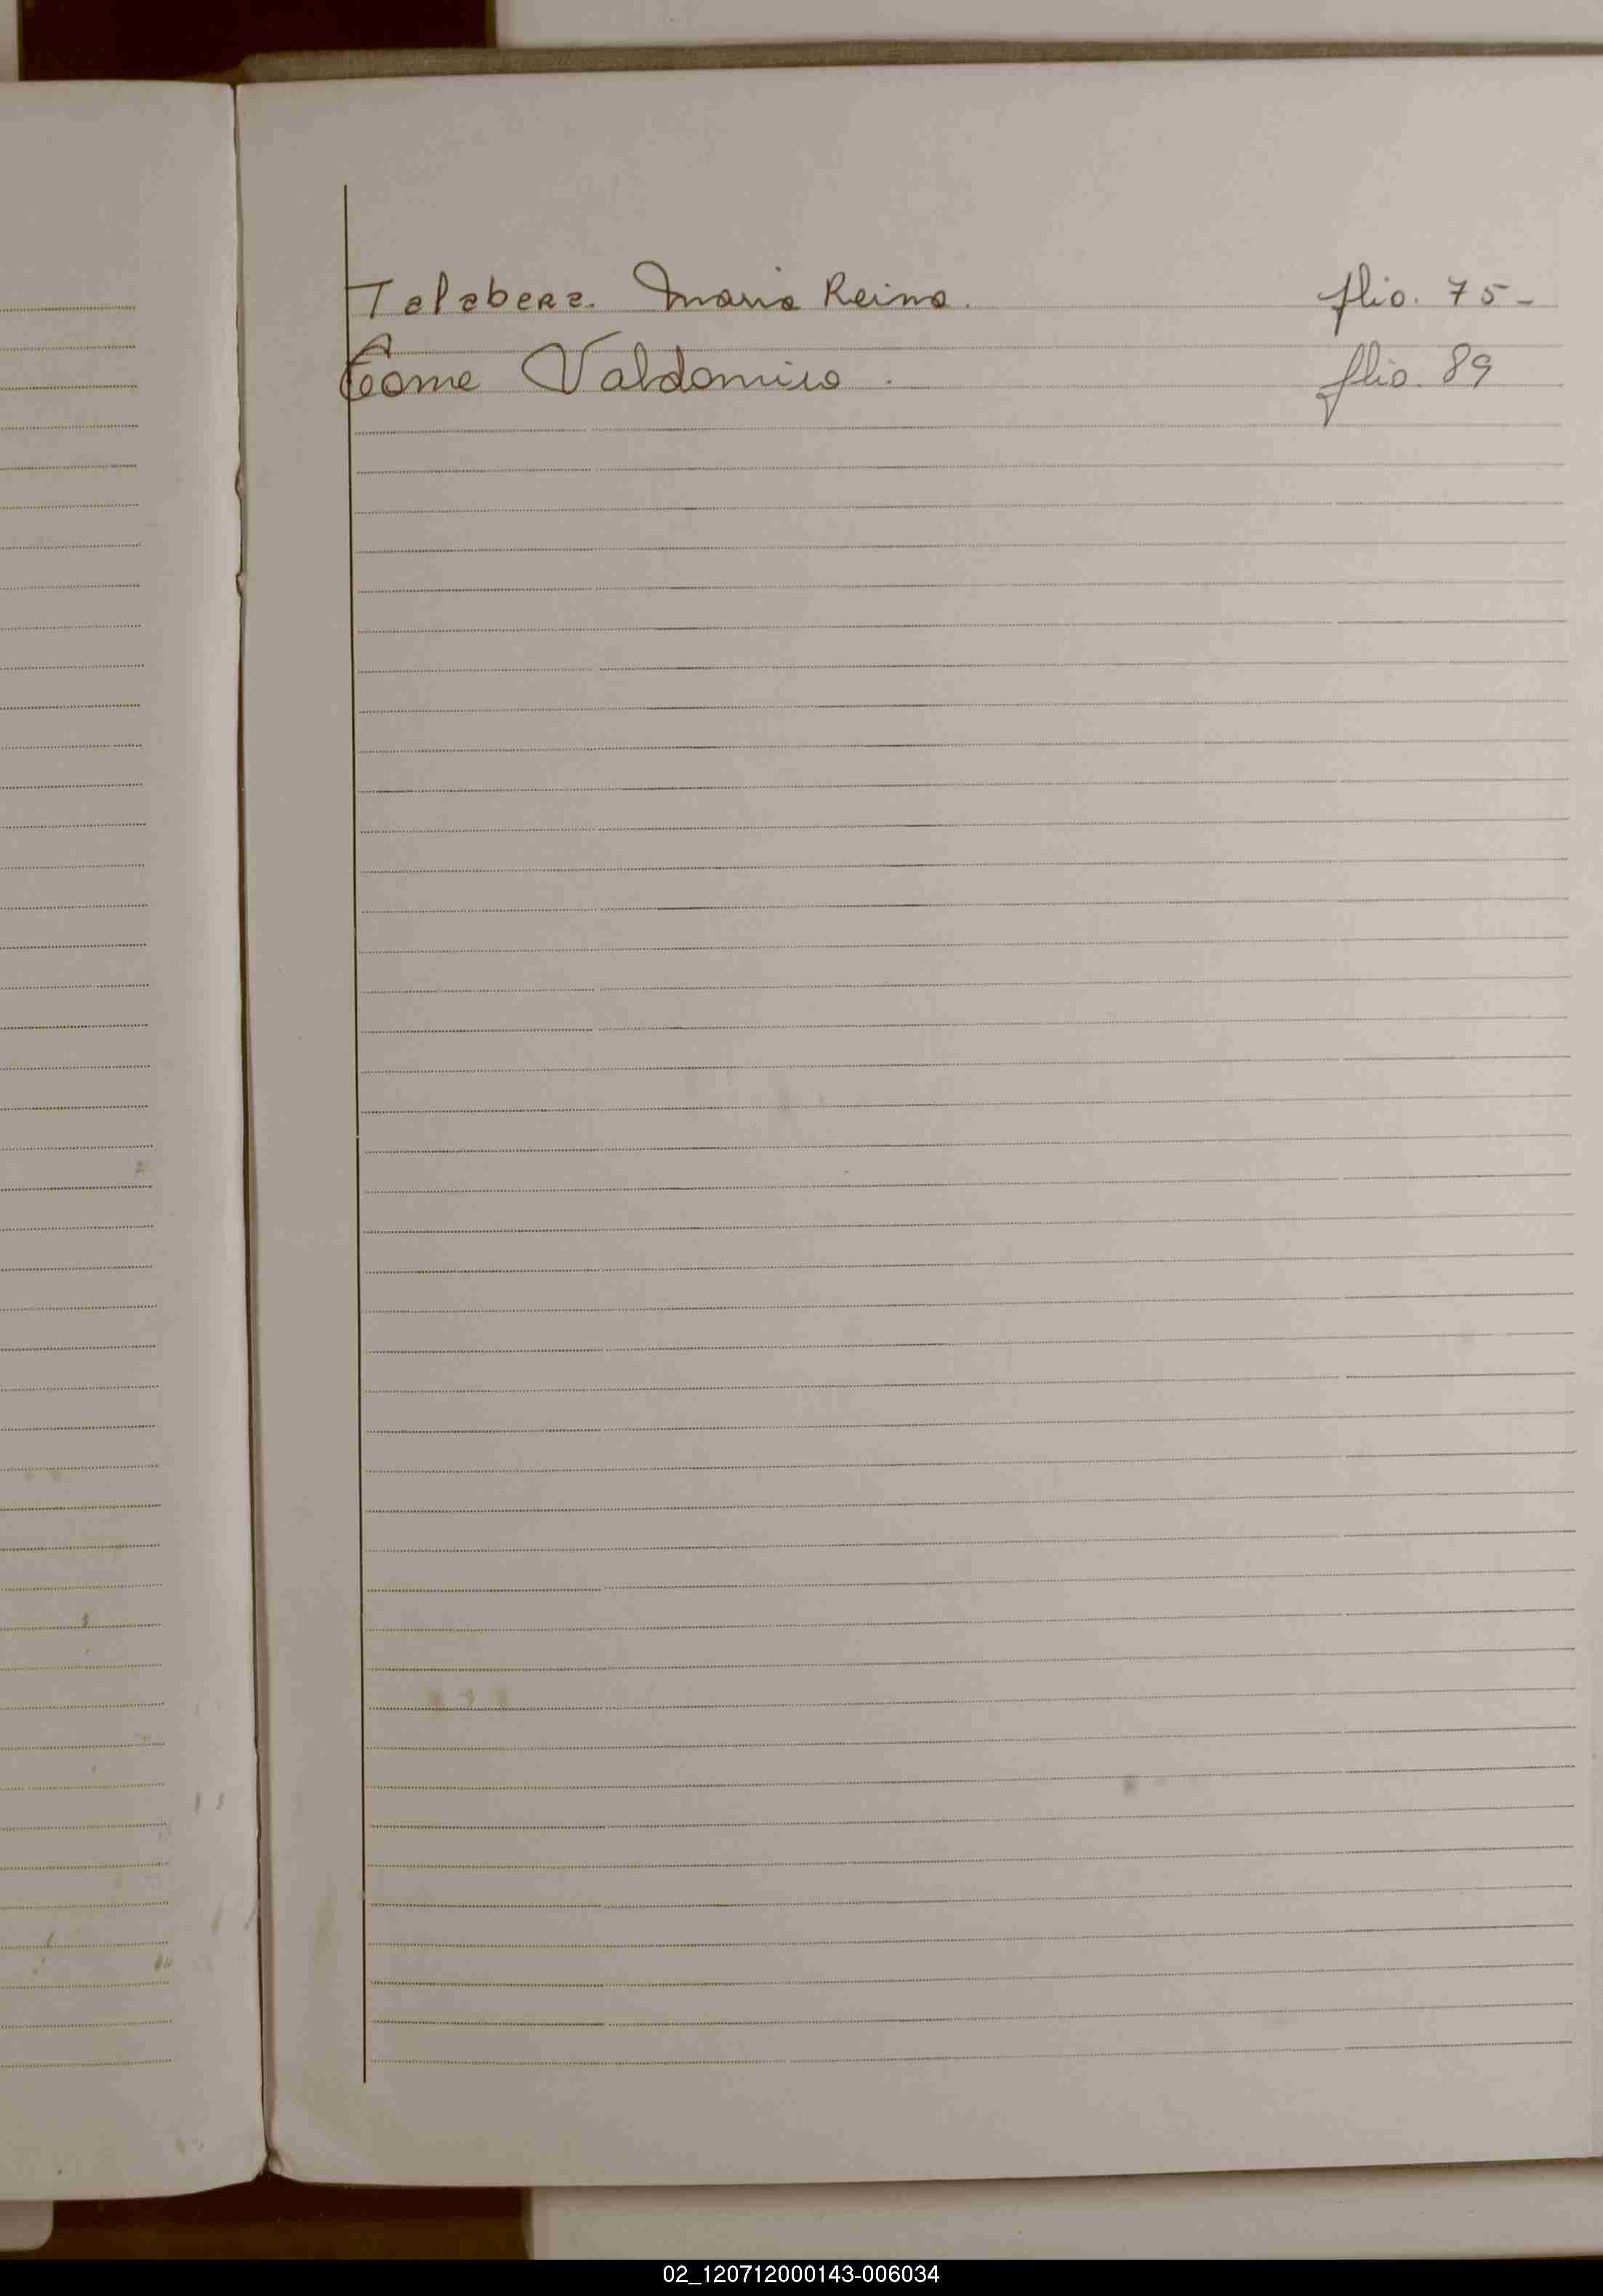 Talabera. Maria Reina. flio. 75-
Tome Valdomiro. flio. 89
02_120712000143-006034